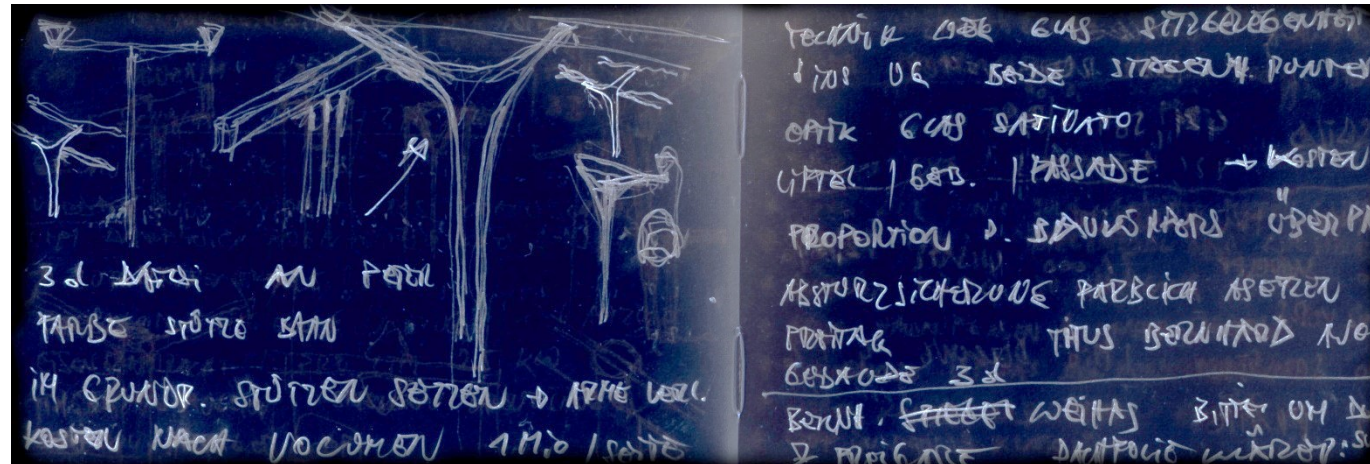 3d DATEI AN PETER
FARBE STÜTZE BAHN
IM GRUNDR. STÜTZEN SETZEN → ARME VERL.
KOSTEN NACH VOLUMEN 1 MIO / SEITE
TECHNIK GLAS SITZGELEGENHEI
UG BEIDE
OPTIK GLAS SATINATO
LIFTE / GEB. / FASSADE → KOSTEN
PROPORTION D. BAUWERKS ÜBERP
ABSTURZSICHERUNG FARBLICH ABSETZEN
FREITAG TITUS BERNHARD
GEBÄUDE 3d
BERNH. WEIHAS BITTE UM D
FREIGABE DACHFOLIE